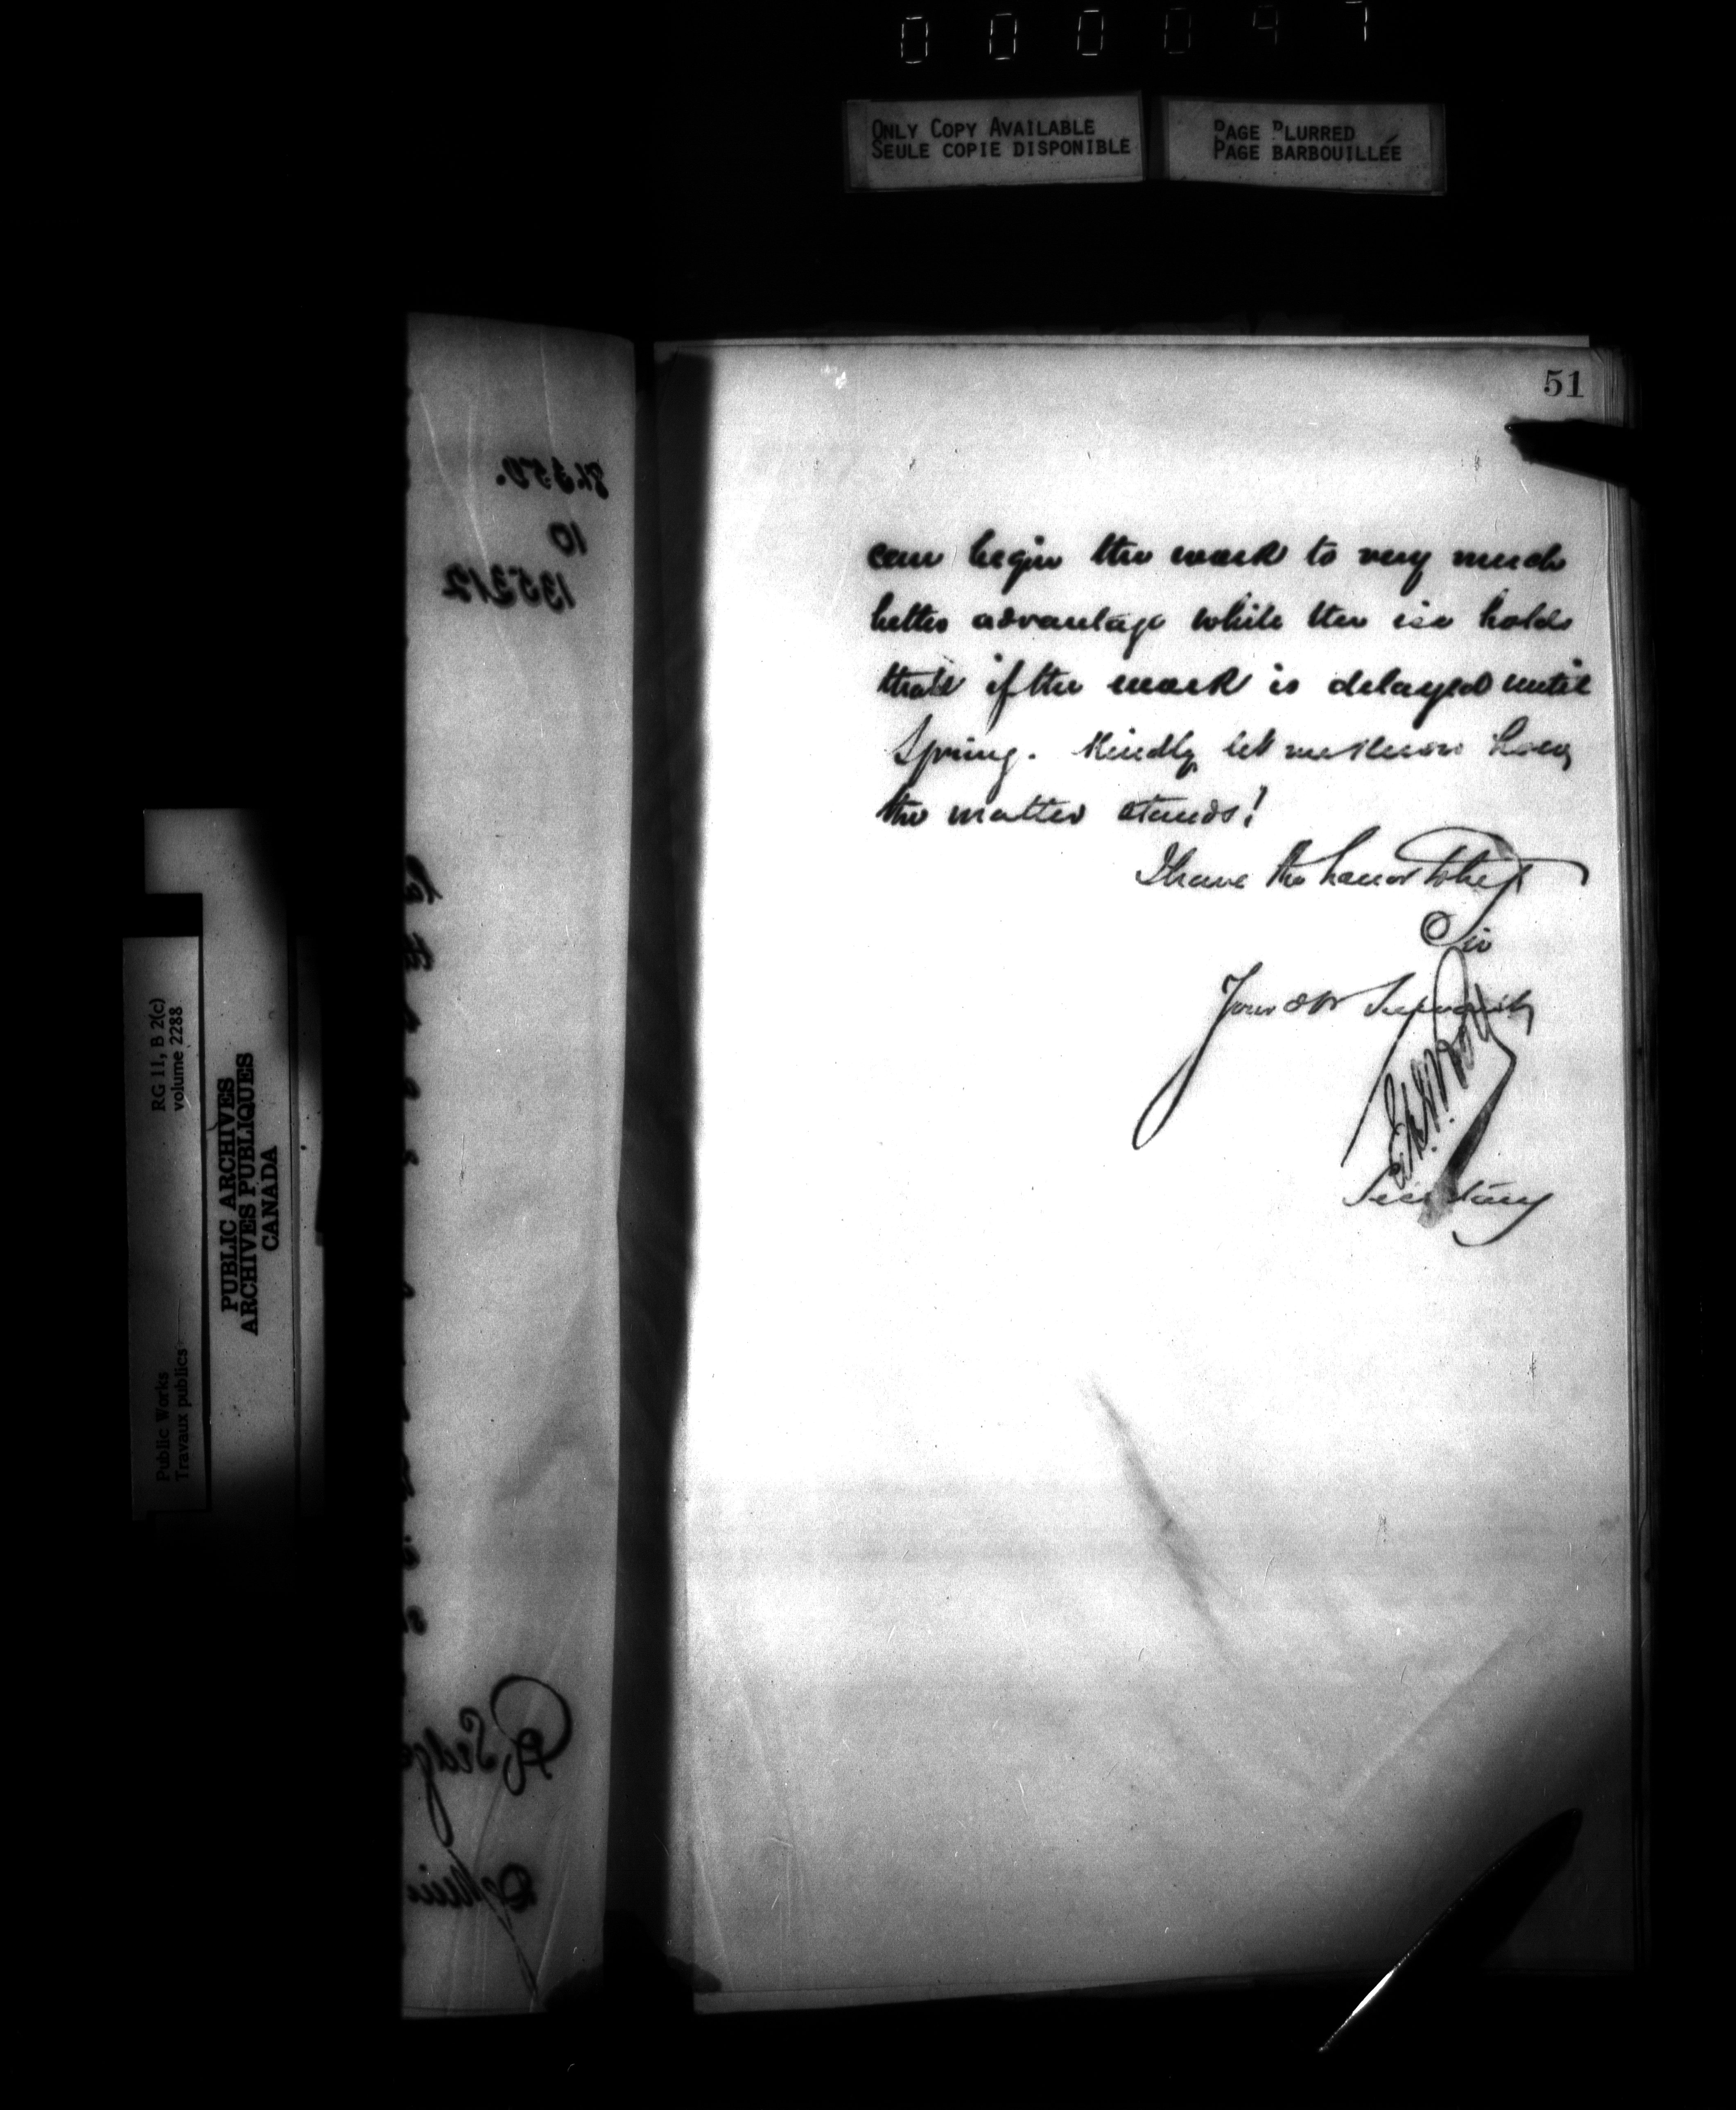 000047
ONLY COPY AVAILABLE
SEULE COPIE DISPONIBLE
PAGE BLURRED
PAGE BARBOUILLÉE
RG 11, B 2(c)
volume 2288
Public Works
Travaux publics
PUBLIC ARCHIVES
ARCHIVES PUBLIQUES
CANADA
10
135312
51
can begin the work to very much
better advantage while the ice holds
than if the work is delayed until
Spring. Kindly let me know how
the matter stands!
I have the honor to be
Sir
Your Obt Servant
Secretary